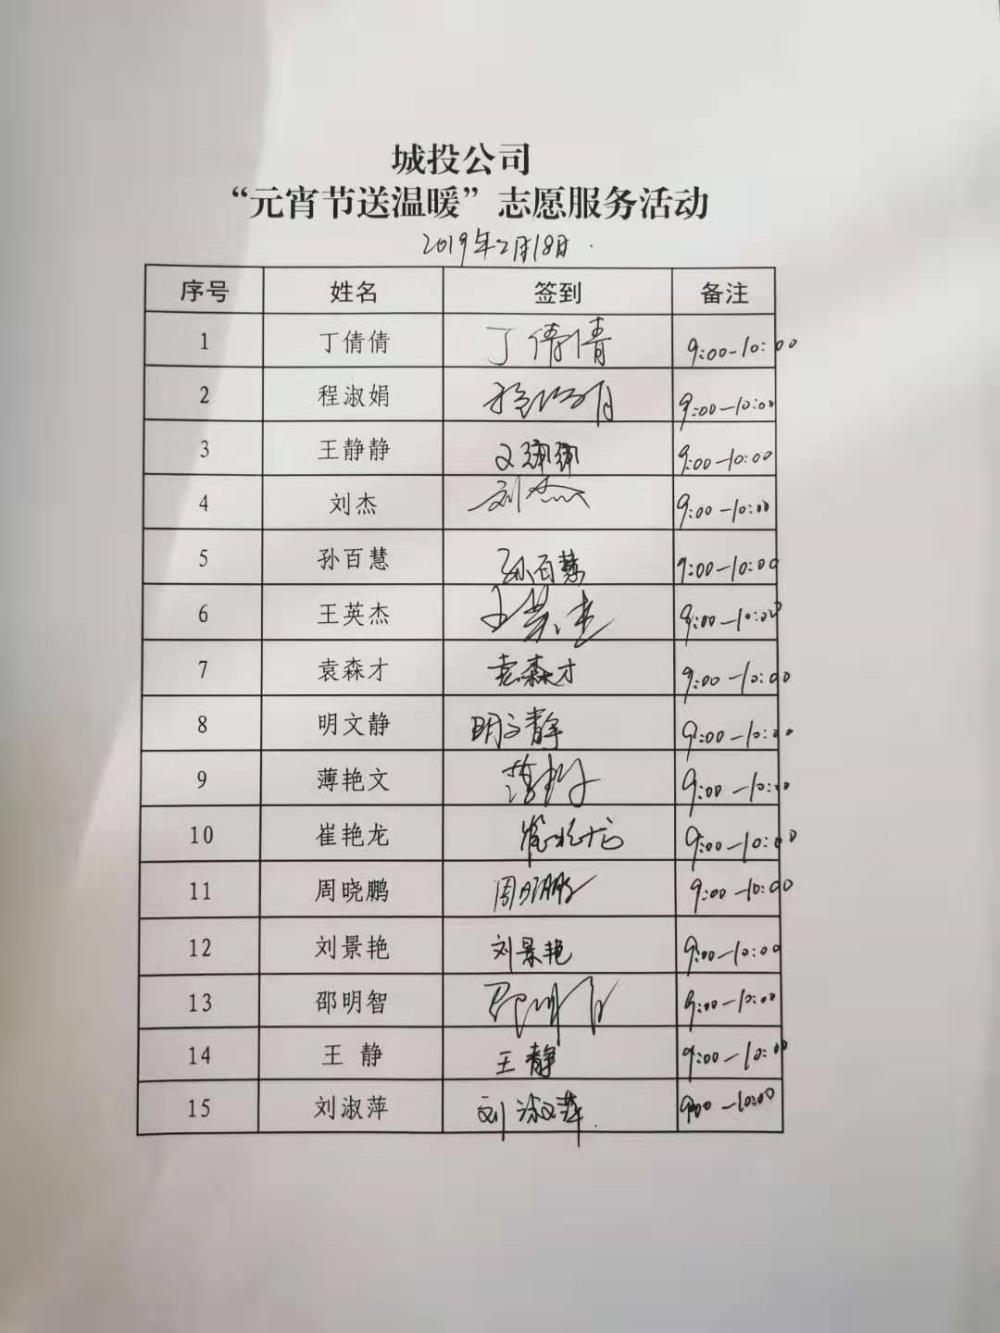 城投公司
“元宵节送温暖”志愿服务活动
2019年2月18日
序号 姓名 签到 备注
1 丁倩倩 丁倩倩 9:00-10:00
2 程淑娟 9:00-10:00
3 王静静 王静静 9:00-10:00
4 刘杰 刘杰 9:00-10:00
5 孙百慧 孙百慧 9:00-10:00
6 王英杰 王英杰 9:00-10:00
7 袁森才 袁森才 9:00-10:00
8 明文静 明文静 9:00-10:00
9 薄艳文 9:00-10:00
10 崔艳龙 崔艳龙 9:00-10:00
11 周晓鹏 周晓鹏 9:00-10:00
12 刘景艳 刘景艳 9:00-10:00
13 邵明智 9:00-10:00
14 王 静 王静 9:00-10:00
15 刘淑萍 刘淑萍 9:00-10:00